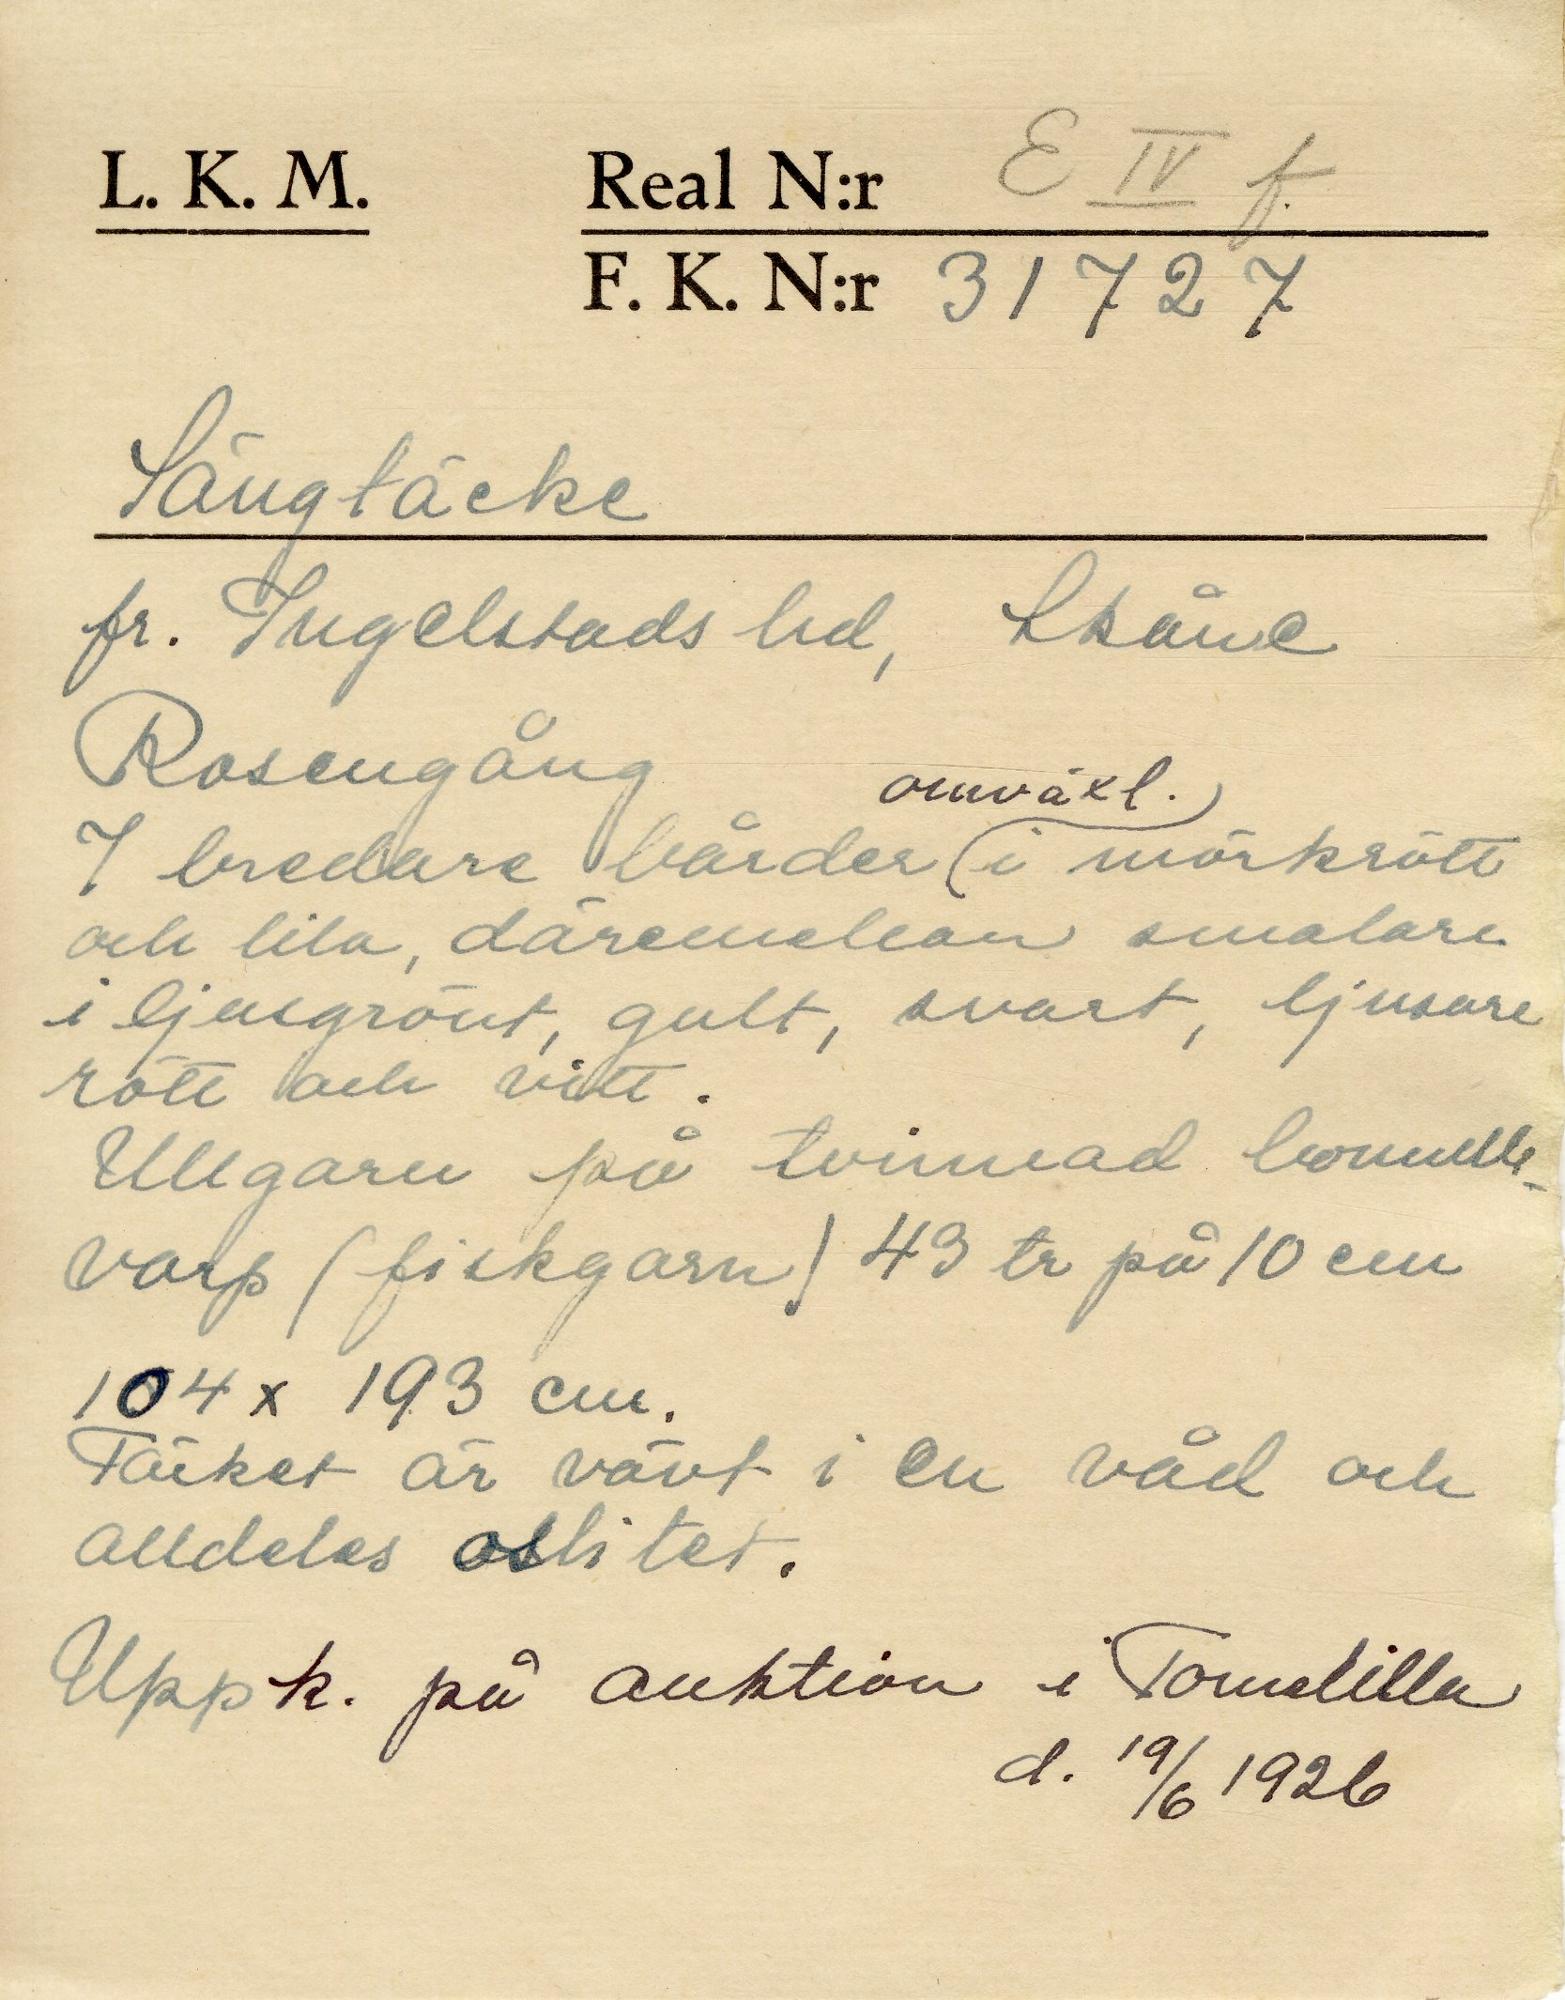 L. K. M. Real N:r E IV f.
F. K. N:r 31727
Sängtäcke
fr. Ingelstads hd, Skåne
Rosengång
omväxl.
7 bredare bårder i mörkrött
och lila, däremellan smalare
i ljusgrönt, gult, svart, ljusare
rött och vitt.
Ullgarn på tvinnad bomulls-
varp (fiskgarn) 43 tr på 10 cm
104 x 193 cm.
Täcket är vävt i en våd och
alldeles oslitet.
Uppk. på auktion i Tomelilla
d. 19/6 1926